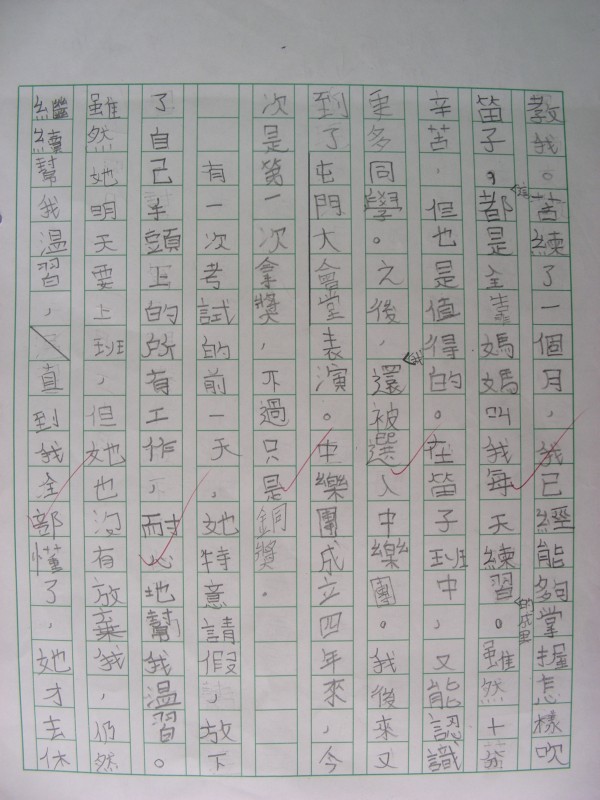 教我。苦練了一個月，我已經能夠掌握怎樣吹
笛子。這都是全靠媽媽叫我每天練習的成果。雖然十分
辛苦，但也是值得的。在笛子班中，又能認識
更多同學。之後，我還被選入中樂團。我後來又
到了屯門大會堂表演。中樂團成立四年來，今
次是第一次拿獎，不過只是銅獎。
有一次考試的前一天，她特意請假，放下
了自己手頭上的所有工作，耐心地幫我溫習。
雖然她明天要上班，但她也沒有放棄我，仍然
繼續幫我溫習，直到我全部懂了，她才去休